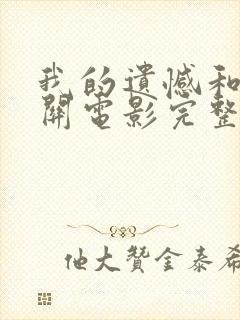 我的遺憾和
關電影完整
他大贊金泰希